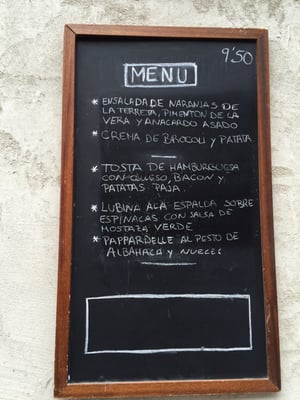 9'50
MENU
* ENSALADA DE NARANJAS DE
LA TERRETA, PIMENTON DE LA
VERA Y ANACARDO ASADO
* CREMA DE BROCOLI Y PATATA
* TOSTA DE HAMBURGUESA
CON QUESO, BACON Y
PATATAS PAJA.
* LUBINA A LA ESPALDA SOBRE
ESPINACAS CON SALSA DE
MOSTAZA VERDE
* PAPPARDELLE AL PESTO DE
ALBAHACA Y NUECES